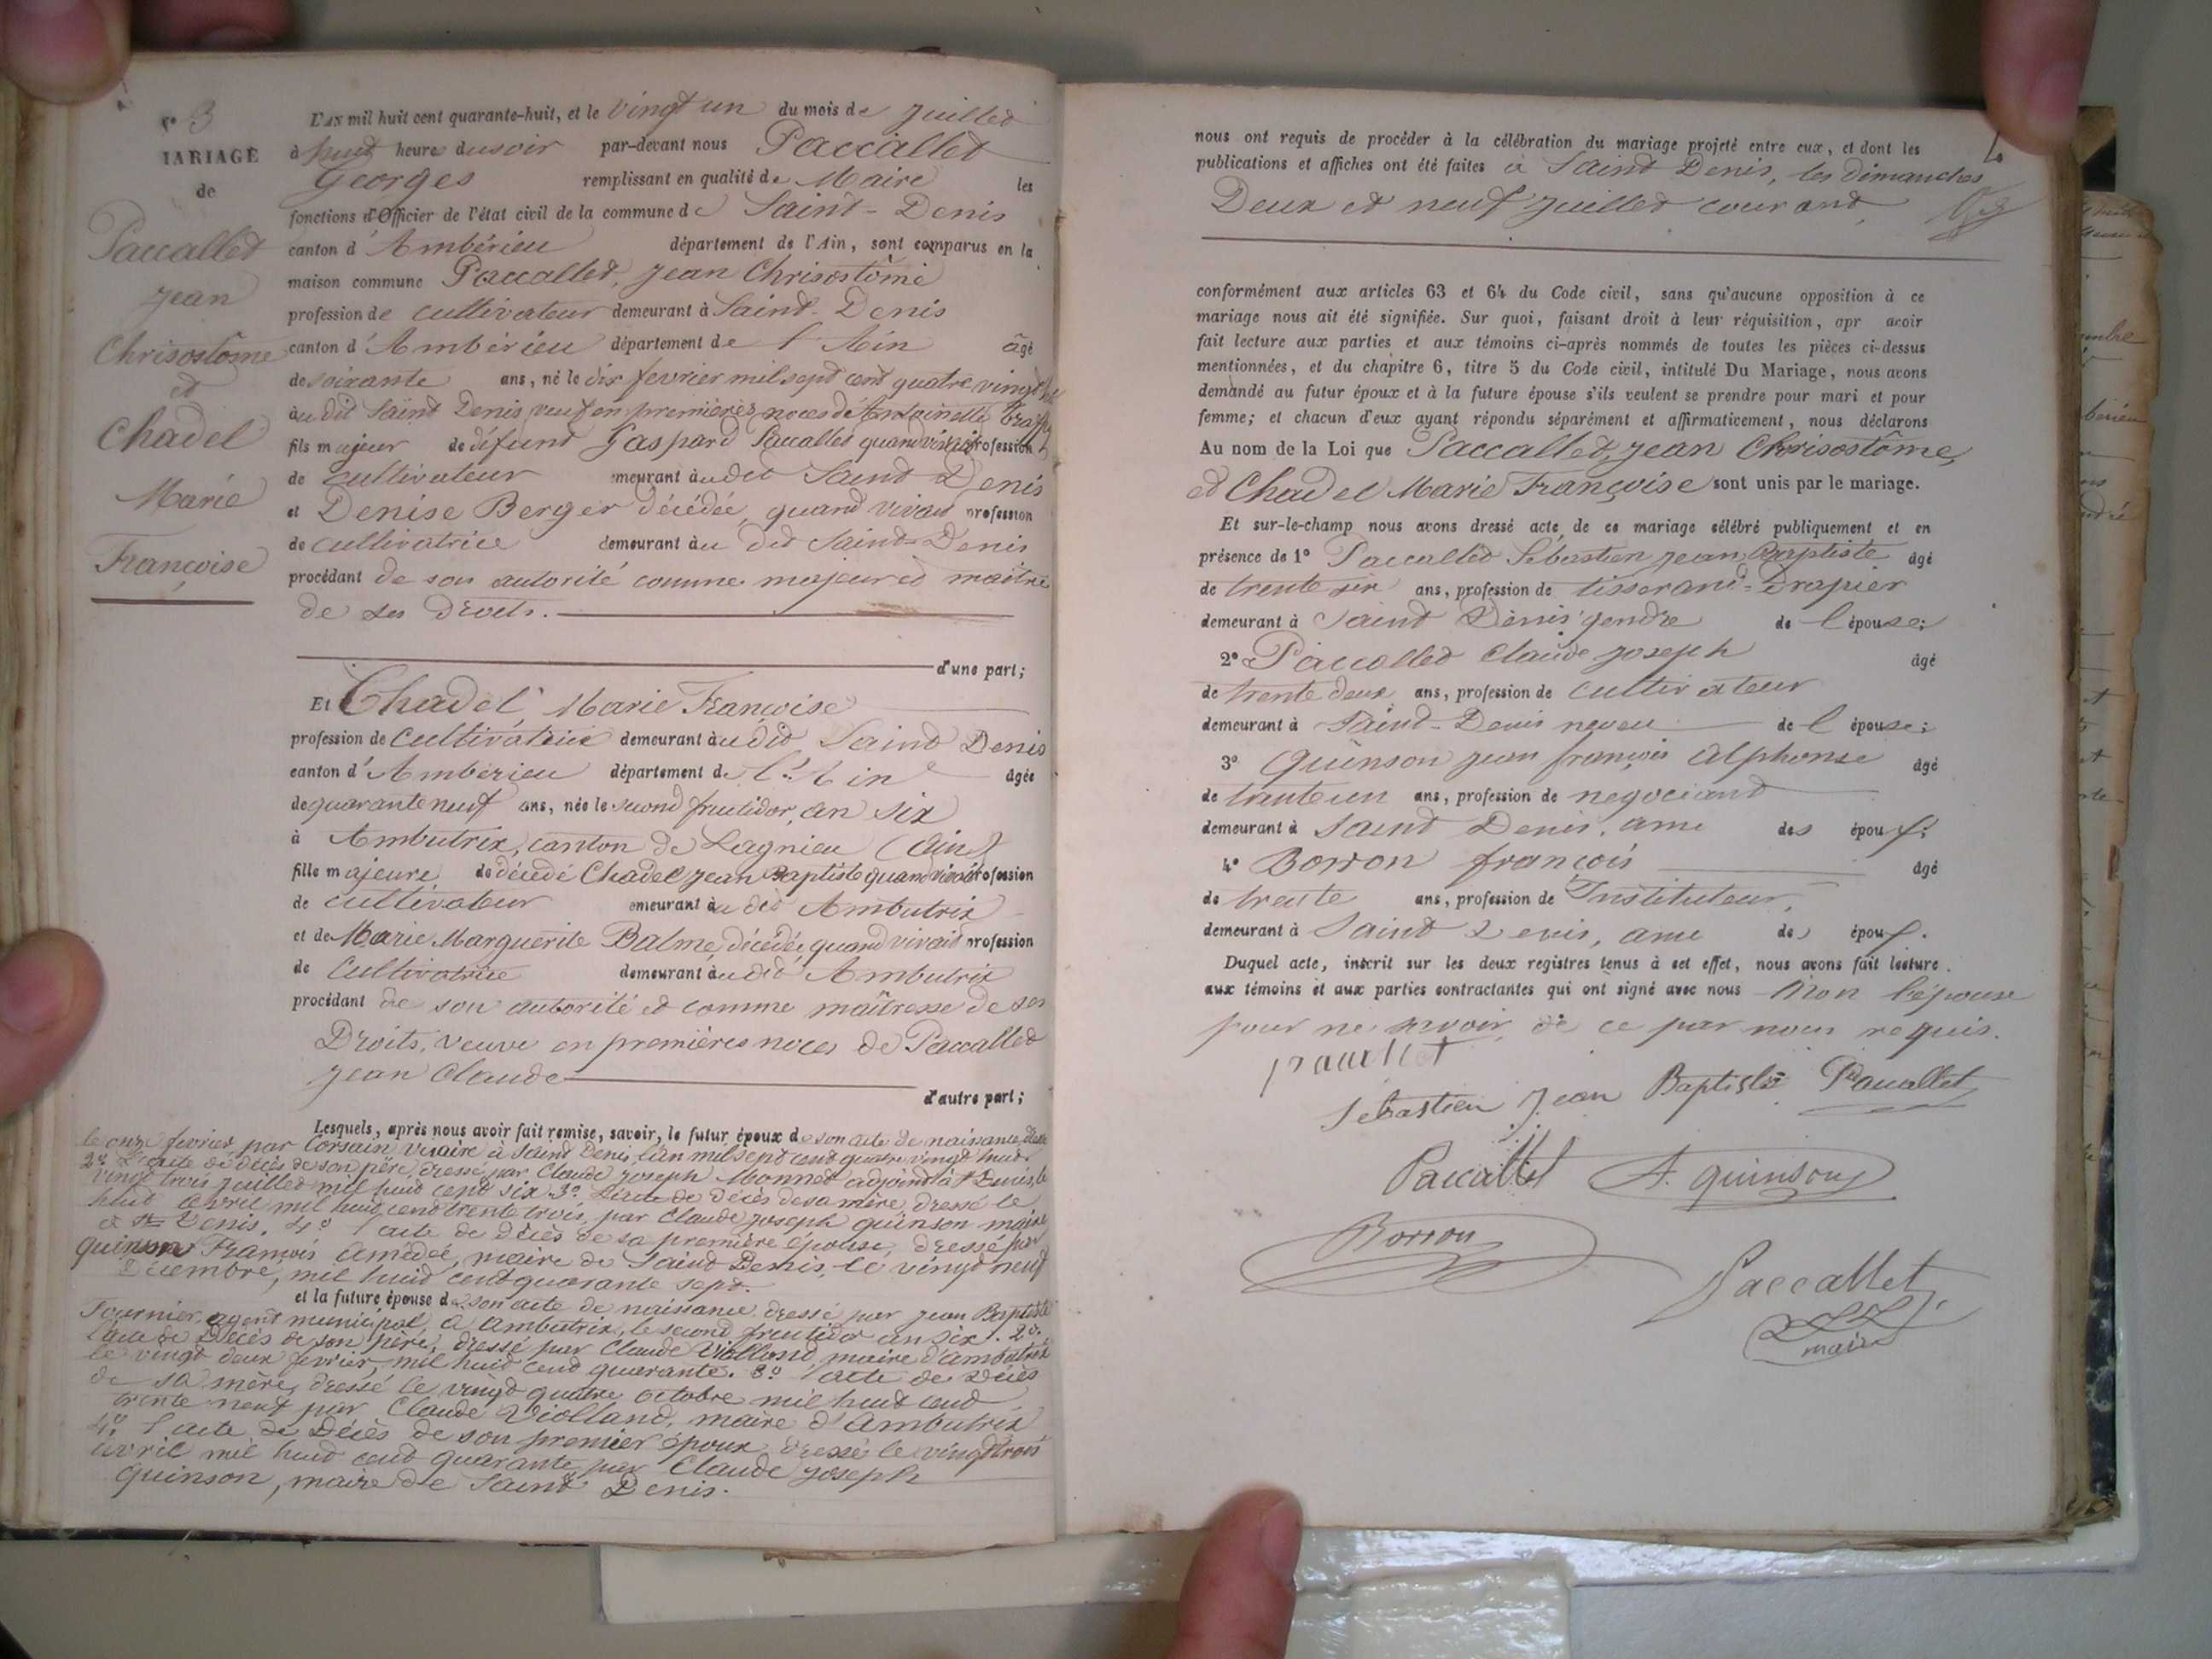 N° 3
MARIAGE
de
Paccallet
Jean
Chrisostôme
et
Chadel
Marie
Françoise
L'AN mil huit cent quarante-huit, et le vingt un du mois de Juillet
à huit heures du soir par-devant nous Paccallet
Georges remplissant en qualité de Maire les
fonctions d'Officier de l'état civil de la commune de Saint-Denis
canton d'Ambérieu département de l'Ain, sont comparus en la
maison commune Paccallet, Jean Chrisostôme
profession de cultivateur demeurant à Saint-Denis
canton d'Ambérieu département de l'Ain âgé
de soixante ans, né le dix fevrier mil sept cent quatre vingt huit
au dit Saint Denis, veuf en premières noces de Antoinette
fils majeur de défunt Gaspard Paccallet quand vivait profession
de cultivateur demeurant audit Saint Denis
et Denise Berger décédée, quand vivait profession
de cultivatrice demeurant au dit Saint-Denis
procédant de son autorité comme majeur et maître
de ses droits.
d'une part;
Et Chadel Marie Françoise
profession de Cultivatrice demeurant audit Saint Denis
canton d'Ambérieu département de l'Ain âgée
de quarante neuf ans, née le second fructidor, an six
à Ambutrix, canton de Lagnieu (Ain)
fille majeure de décédé Chadel Jean Baptiste quand vivait profession
de cultivateur demeurant au dit Ambutrix
et de Marie Marguerite Balme, décédée, quand vivait profession
de Cultivatrice demeurant audit Ambutrix
procédant de son autorité et comme maîtresse de ses
Droits, veuve en premières noces de Paccallet
Jean Claude
d'autre part;
Lesquels, après nous avoir fait remise, savoir, le futur époux de son acte de naissance,
le onze fevrier, par Corsain, vicaire à Saint Denis, l'an mil sept cent quatre vingt huit
2° L'acte de décès de son père, dressé par Claude Joseph Monnet adjoint à St Denis, le
vingt trois juillet mil huit cent six. 3° L'acte de décès de sa mère, dressé le
huit avril mil huit cent trente trois, par Claude Joseph Quinson maire
à St Denis. 4° l'acte de décès de sa première épouse, dressé par
Quinson François Amédée, maire de Saint Denis, le vingt neuf
Décembre, mil huit cent quarante sept.
et la future épouse de son acte de naissance dressé par Jean Baptiste
Fournier, agent municipal, à Ambutrix, le second fructidor an six. 2°.
l'acte de Décès de son père, dressé par Claude Violland, maire d'Ambutrix
le vingt deux fevrier, mil huit cent quarante. 3° l'acte de Décès
de sa mère, dressé le vingt quatre octobre mil huit cent
trente neuf par Claude Violland, maire d'Ambutrix
4° l'acte de Décès de son premier époux, dressé le vingt trois
avril mil huit cent quarante, par Claude Joseph
Quinson, maire de Saint Denis.
nous ont requis de procéder à la célébration du mariage projeté entre eux, et dont les
publications et affiches ont été faites à Saint Denis, les dimanches
Deux et neuf Juillet courant
conformément aux articles 63 et 64 du Code civil, sans qu'aucune opposition à ce
mariage nous ait été signifiée. Sur quoi, faisant droit à leur réquisition, apr avoir
fait lecture aux parties et aux témoins ci-après nommés de toutes les pièces ci-dessus
mentionnées, et du chapitre 6, titre 5 du Code civil, intitulé Du Mariage, nous avons
demandé au futur époux et à la future épouse s'ils veulent se prendre pour mari et pour
femme; et chacun d'eux ayant répondu séparément et affirmativement, nous déclarons
Au nom de la Loi que Paccallet, Jean Chrisostôme,
et Chadel Marie Françoise sont unis par le mariage.
Et sur-le-champ nous avons dressé acte de ce mariage célébré publiquement et en
présence de 1° Paccallet Sébastien Jean Baptiste âgé
de trente six ans, profession de tisserand-Drapier
demeurant à Saint Denis gendre de l'épouse;
2° Paccallet Claude Joseph âgé
de trente deux ans, profession de Cultivateur
demeurant à Saint-Denis neveu de l'épouse;
3° Quinson Jean françois Alphonse âgé
de trente un ans, profession de negociant
demeurant à Saint Denis, ami des époux;
4° Borron françois âgé
de trente ans, profession de Instituteur,
demeurant à Saint Denis, ami des époux.
Duquel acte, inscrit sur les deux registres tenus à cet effet, nous avons fait lecture
aux témoins et aux parties contractantes qui ont signé avec nous Non l'épouse
pour ne savoir, de ce par nous requis.
paccallet
Sebastien Jean Baptiste Paccallet
Paccallet A. quinson
Borron
Paccallet
maire